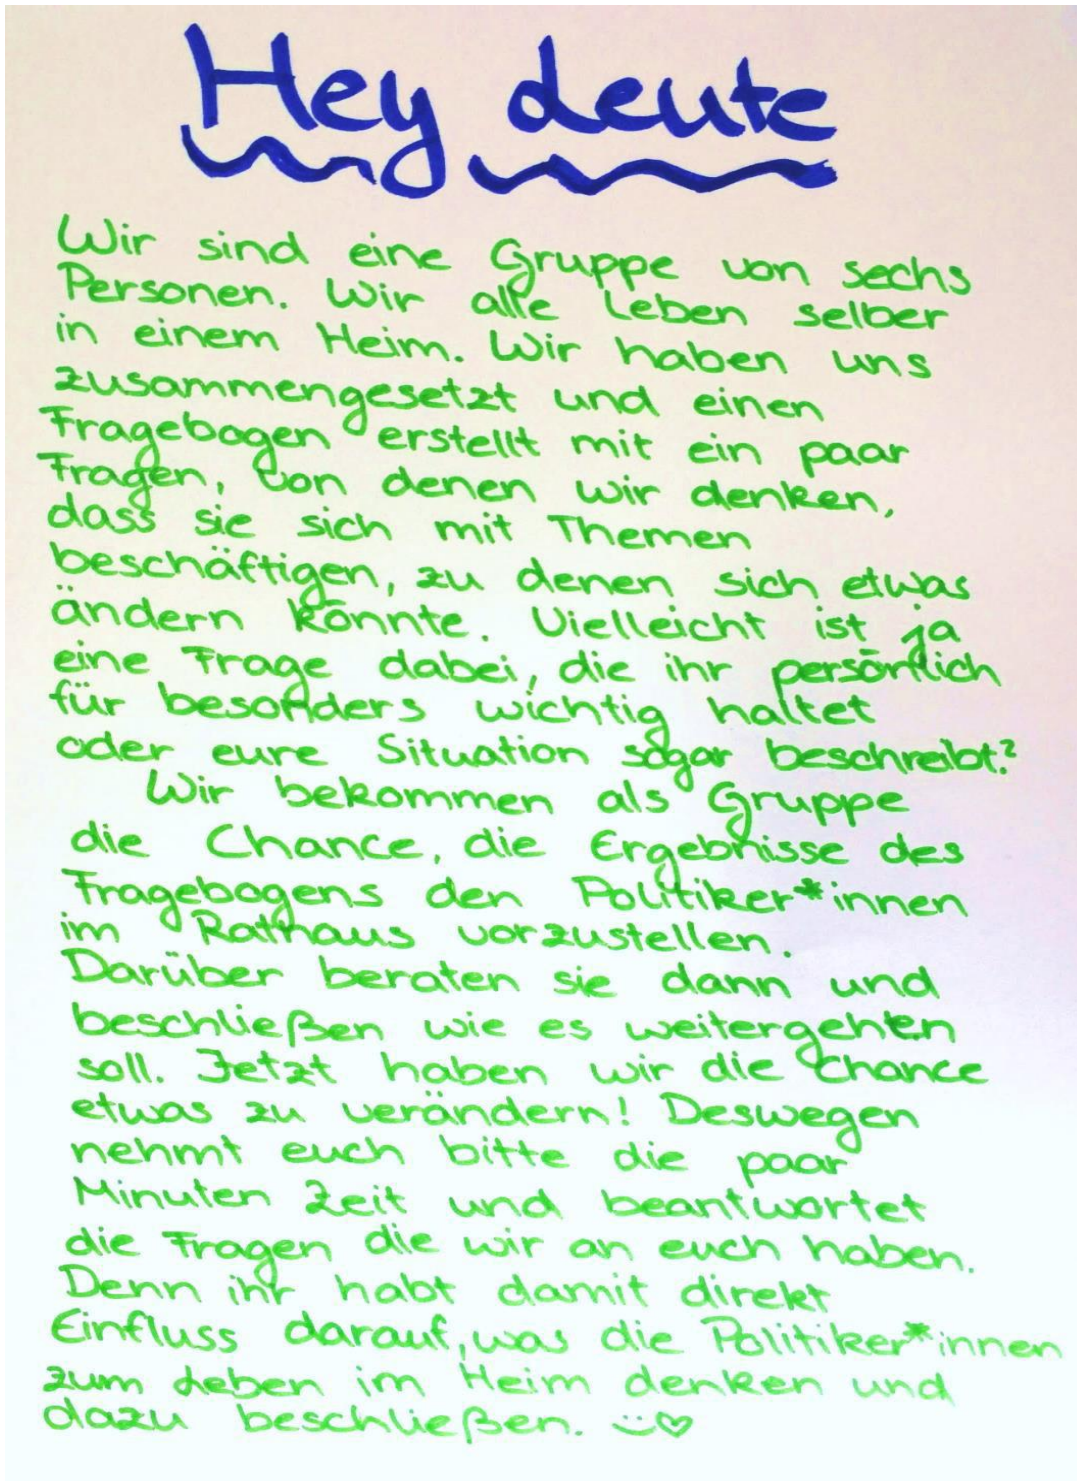 Hey Leute
Wir sind eine Gruppe von sechs
Personen. Wir alle Leben selber
in einem Heim. Wir haben uns
zusammengesetzt und einen
Fragebogen erstellt mit ein paar
Fragen, von denen wir denken,
dass sie sich mit Themen
beschäftigen, zu denen sich etwas
ändern könnte. Vielleicht ist ja
eine Frage dabei, die ihr persönlich
für besonders wichtig haltet
oder eure Situation sogar beschreibt.?
Wir bekommen als Gruppe
die Chance, die Ergebnisse des
Fragebogens den Politiker*innen
im Rathaus vorzustellen.
Darüber beraten sie dann und
beschließen wie es weitergehen
soll. Jetzt haben wir die Chance
etwas zu verändern! Deswegen
nehmt euch bitte die paar
Minuten Zeit und beantwortet
die Fragen die wir an euch haben.
Denn ihr habt damit direkt
Einfluss darauf, was die Politiker*innen
zum Leben im Heim denken und
dazu beschließen. :)♡